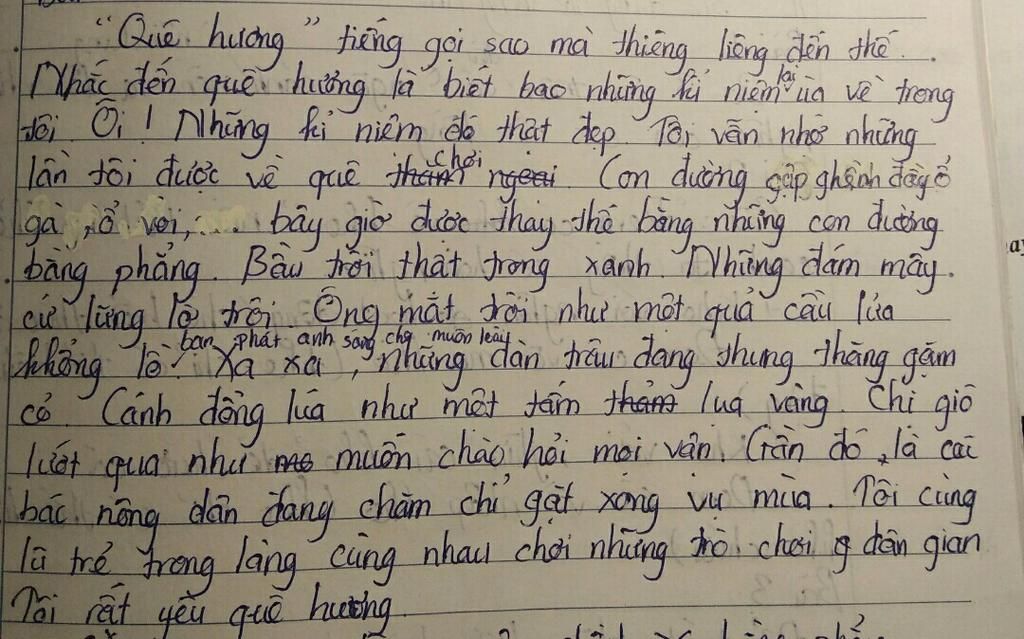 "Quê hương" tiếng gọi sao mà thiêng liêng đến thế.
Nhắc đến quê hương là biết bao những kỉ niệm lại ùa về trong
tôi. Ôi! Những kỉ niệm đó thật đẹp. Tôi vẫn nhớ những
lần tôi được về quê thăm chơi ngoại. Con đường gập ghềnh đầy ổ
gà, ổ voi,... bây giờ được thay thế bằng những con đường
bằng phẳng. Bầu trời thật trong xanh. Những đám mây
cứ lững lờ trôi. Ông mặt trời như một quả cầu lửa
khổng lồ ban phát ánh sáng cho muôn loài. Xa xa, những đàn trâu đang thung thăng gặm
cỏ. Cánh đồng lúa như một tấm thảm lụa vàng. Chị gió
lướt qua như muốn chào hỏi mọi vật. Gần đó, là các
bác nông dân đang chăm chỉ gặt xong vụ mùa. Tôi cùng
lũ trẻ trong làng cùng nhau chơi những trò chơi dân gian
Tôi rất yêu quê hương.